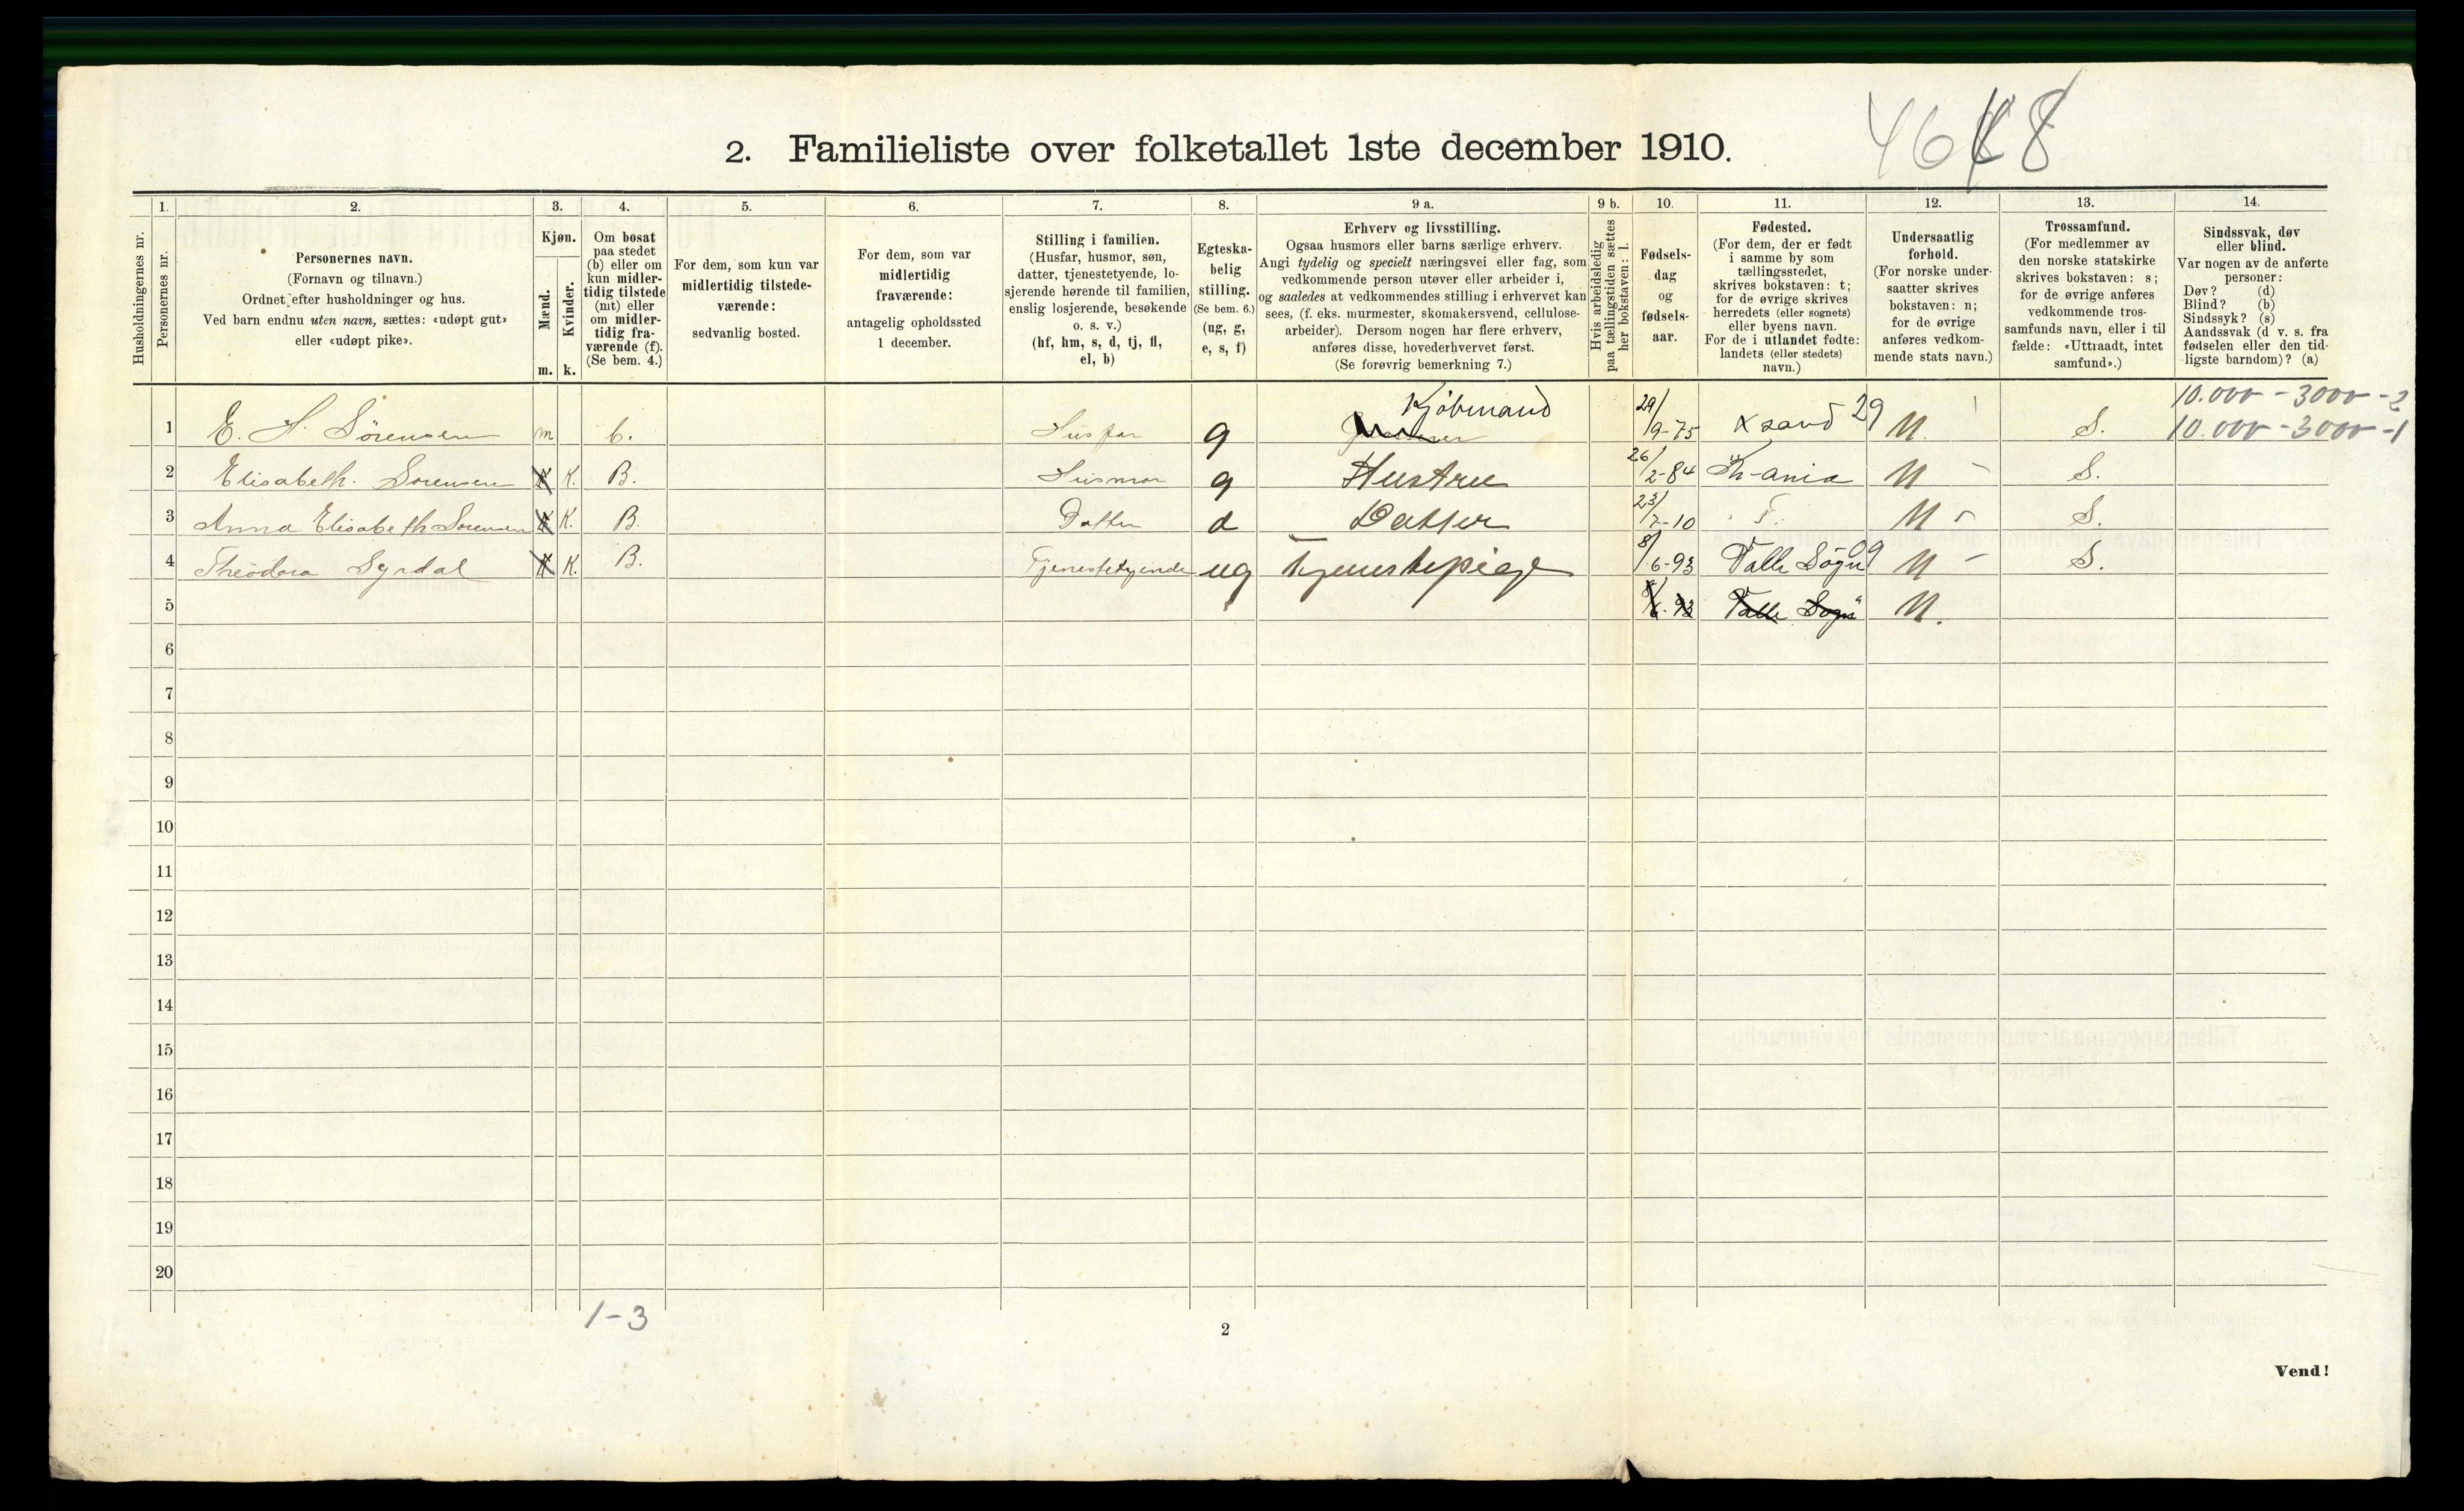 4648
2. Familieliste over folketallet 1ste december 1910.
1. 2. 3. 4. 5. 6. 7. 8. 9 a. 9 b. 10. 11. 12. 13. 14.
Husholdningernes nr.
Personernes nr.
Personernes navn.
(Fornavn og tilnavn.)
Ordnet efter husholdninger og hus.
Ved barn endnu uten navn, sættes: «udøpt gut»
eller «udøpt pike».
Kjøn.
Mænd.
Kvinder.
m. k.
Om bosat
paa stedet
(b) eller om
kun midler-
tidig tilstede
(mt) eller
om midler-
tidig fra-
værende (f).
(Se bem. 4.)
For dem, som kun var
midlertidig tilstede-
værende:
sedvanlig bosted.
For dem, som var
midlertidig
fraværende:
antagelig opholdssted
1 december.
Stilling i familien.
(Husfar, husmor, søn,
datter, tjenestetyende, lo-
sjerende hørende til familien,
enslig losjerende, besøkende
o. s. v.)
(hf, hm, s, d, tj, fl,
el, b)
Egteska-
belig
stilling.
(Se bem. 6.)
(ug, g,
e, s, f)
Erhverv og livsstilling.
Ogsaa husmors eller barns særlige erhverv.
Angi tydelig og specielt næringsvei eller fag, som
vedkommende person utøver eller arbeider i,
og saaledes at vedkommendes stilling i erhvervet kan
sees, (f. eks. murmester, skomakersvend, cellulose-
arbeider). Dersom nogen har flere erhverv,
anføres disse, hovederhvervet først.
(Se forøvrig bemerkning 7.)
Hvis arbeidsledig
paa tællingstiden sættes
her bokstaven: l.
Fødsels-
dag
og
fødsels-
aar.
Fødested.
(For dem, der er født
i samme by som
tællingsstedet,
skrives bokstaven: t;
for de øvrige skrives
herredets (eller sognets)
eller byens navn.
For de i utlandet fødte:
landets (eller stedets)
navn.)
Undersaatlig
forhold.
(For norske under-
saatter skrives
bokstaven: n;
for de øvrige
anføres vedkom-
mende stats navn.)
Trossamfund.
(For medlemmer av
den norske statskirke
skrives bokstaven: s;
for de øvrige anføres
vedkommende tros-
samfunds navn, eller i til
fælde: «Uttraadt, intet
samfund».)
Sindssvak, døv
eller blind.
Var nogen av de anførte
personer:
Døv? (d)
Blind? (b)
Sindssyk? (s)
Aandssvak (d v. s. fra
fødselen eller den tid-
ligste barndom)? (a)
10.000 - 3000 - 2
Kjøbmand
1 E. S. Sørensen m b. Husfar g 29/9-75 Xsand 29 N. S. 10.000 - 3000 - 1
2 Elisabeth. Sorensen K. B. Husmor g Hustru 26/2-84 Kr-ania N S.
3 Anna Elisabeth Sorensen K. B. Datter d Datter 23/7-10 T. N S.
4 Theodora Syrdal K. B. Tjenestetyende ug tjenestepige 8/6-93 Valle Sogn N S.
5 8/6. 93 Valle Sogn N.
6
7
8
9
10
11
12
13
14
15
16
17
18
19
20
1-3
2
Vend!